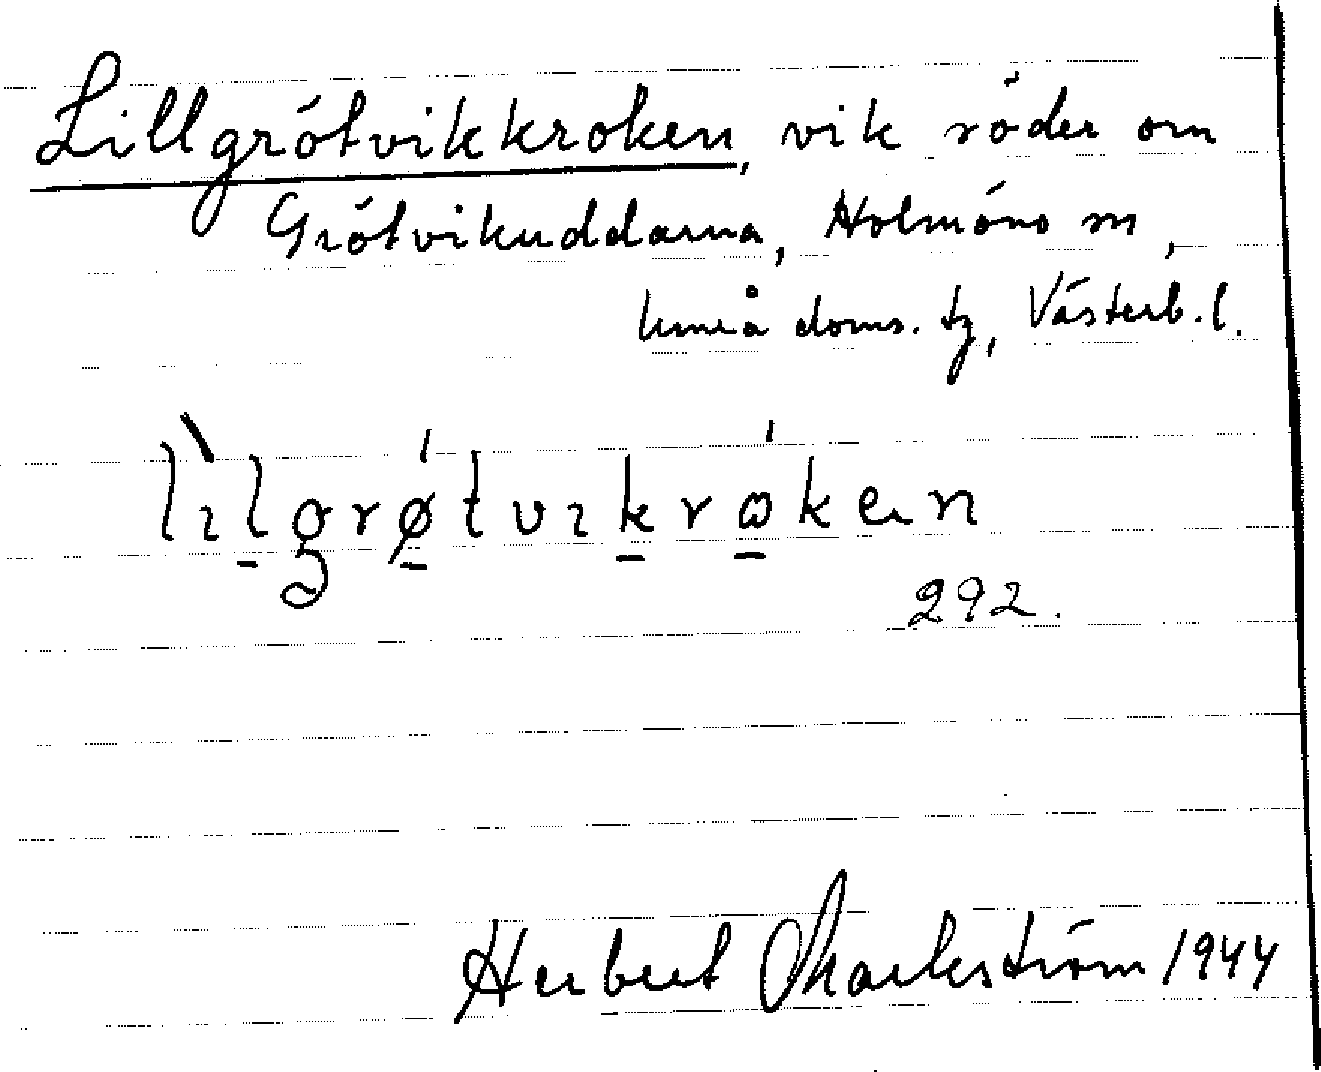 Lillgrötvikkroken, vik söder om
Grötvikuddarna, Holmöns sn,
Umeå doms. tg, Västerb. l.
lìlgrǿtvikrω̇ken
292.
Herbert Markström 1944